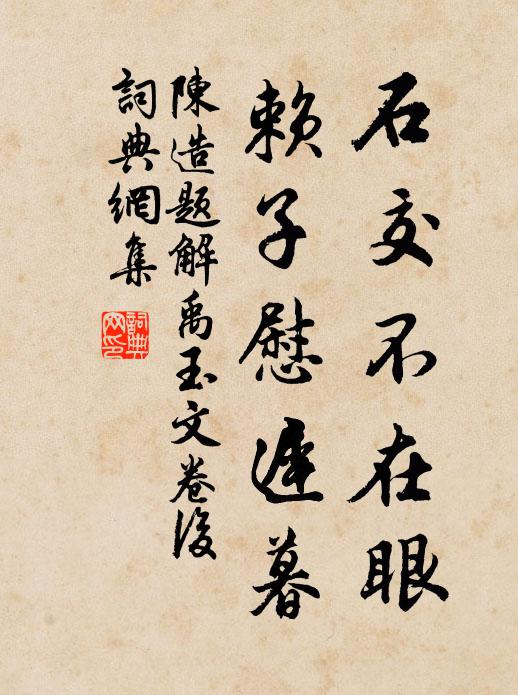 石交不在眼
賴子慰遲暮
陳造題解禹玉文卷後
詞典網集
詞典文印